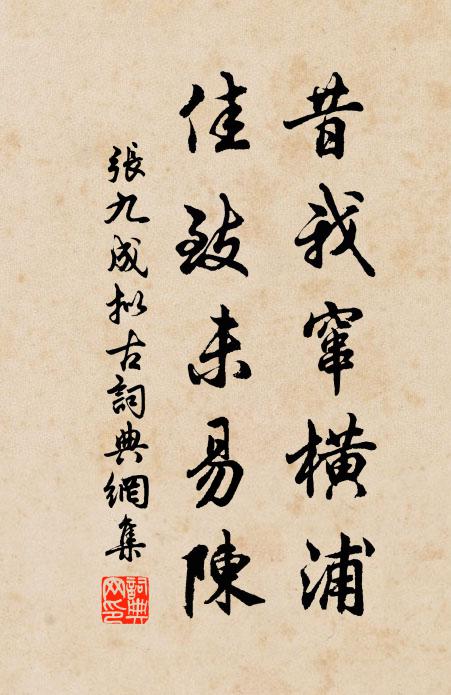 昔我窜橫浦
佳致未易陳
張九成拟古詞典網集
詞典网印